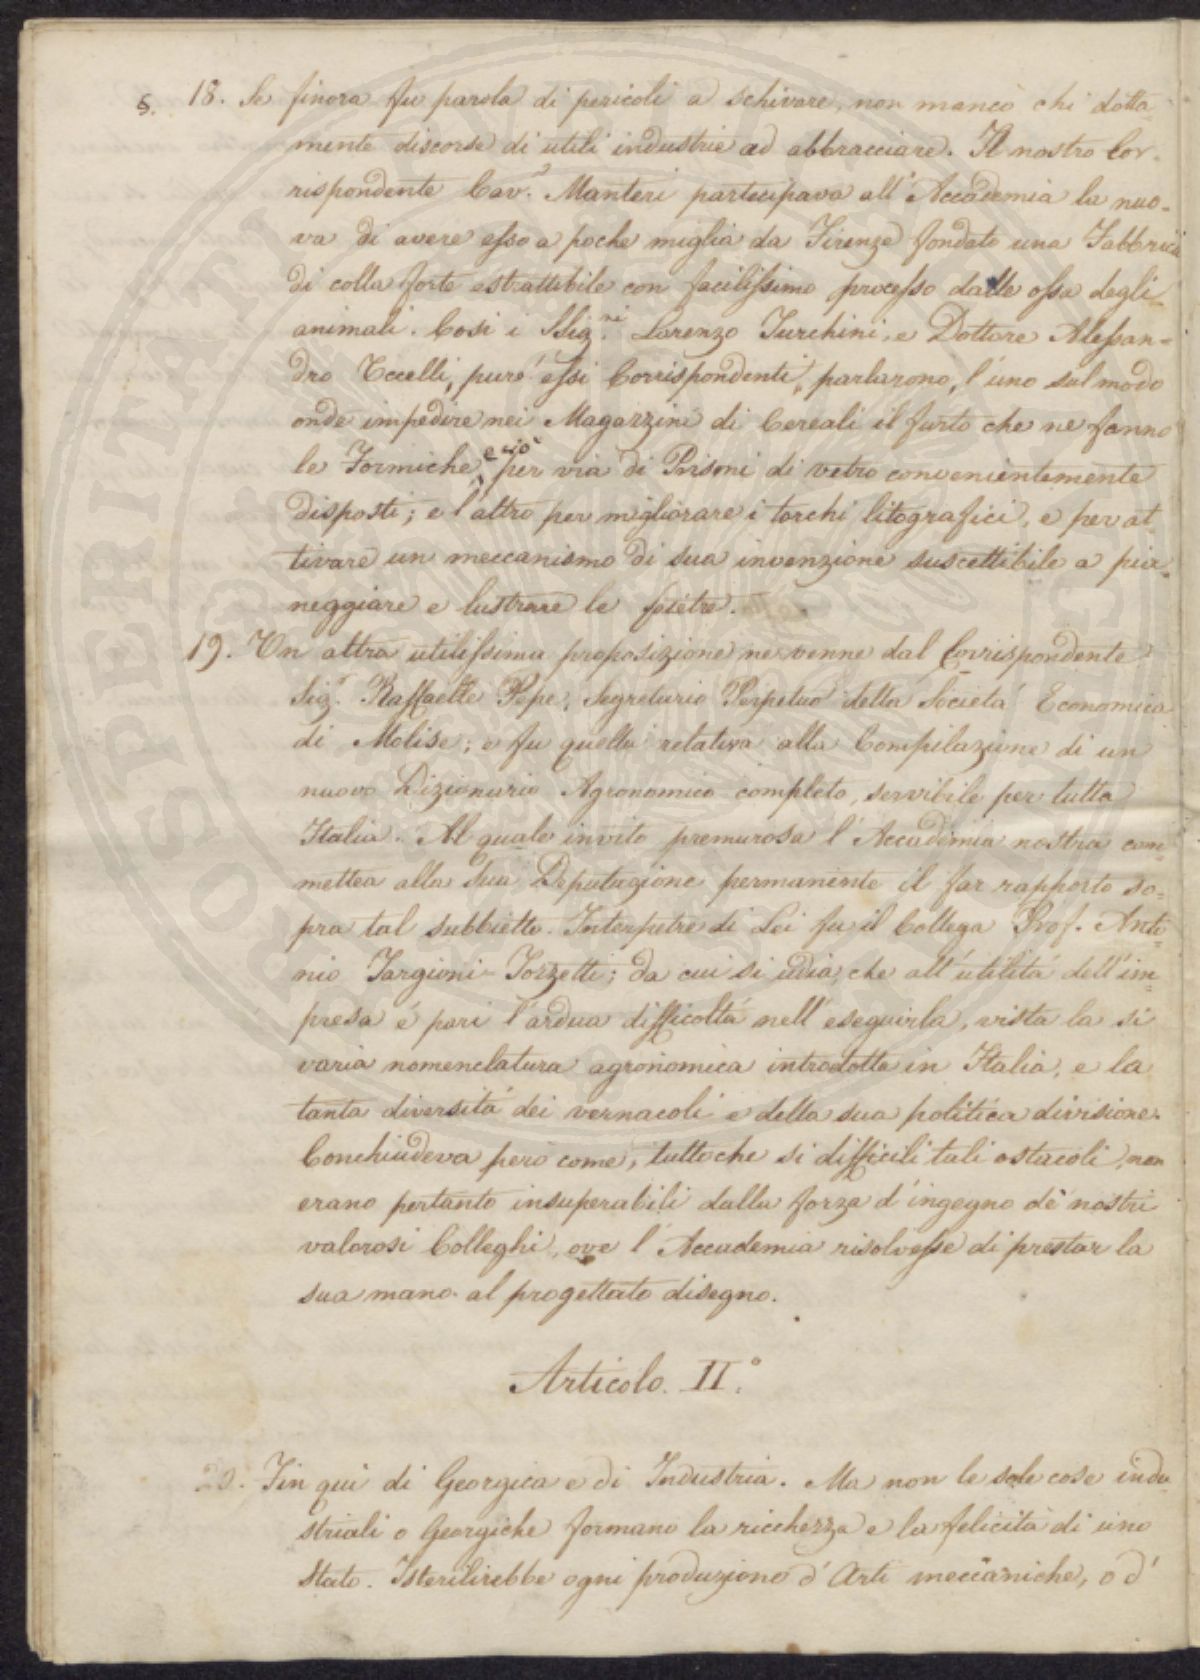 5. 18. Se finora fu parola di pericoli a schivare, non mancò chi dotta-
mente discorse di utili industrie ad abbracciare. Il nostro Cor-
rispondente Cav.e Manteri partecipava all'Accademia la nuo-
va di avere esso a poche miglia da Firenze fondato una Fabbrica
di colla forte estrattibile con facilissimo processo dalle ossa degli
animali. Così i SSig.ni Lorenzo Turchini, e Dottore Alessan-
dro Uccelli, puré essi Corrispondenti, parlarono, l'uno sul modo
onde impedire nei Magazzini di Cereali il furto che ne fanno
le Formiche, e ciò per via di Prismi di vetro convenientemente
disposti; e l'altro per migliorare i torchi litografici, e per at-
tivare un meccanismo di sua invenzione suscettibile a pia-
neggiare e lustrare le pietre.
19. Un altra utilissima proposizione ne venne dal Corrispondente
Sig.r Raffaelle Pepe, Segretario Perpetuo della Società Economica
di Molise; e fu quella relativa alla Compilazione di un
nuovo Dizionario Agronomico completo, servibile per tutta
Italia. Al quale invito premurosa l'Accademia nostra com-
mettea alla Sua Deputazione permanente il far rapporto so-
pra tal subbietto. Interpetre di Lei fu il Collega Prof. Anto-
nio Targioni-Tozzetti; da cui si udia, che all'utilità dell'im-
presa é pari l'ardua difficoltà nell'eseguirla, vista la si
varia nomenclatura agronomica introdotta in Italia, e la
tanta diversità dei vernacoli e della sua politica divisione.
Conchiudeva però come, tuttoche si difficili tali ostacoli, non
erano pertanto insuperabili dalla forza d'ingegno de' nostri
valorosi Colleghi, ove l'Accademia risolvesse di prestar la
sua mano al progettato disegno.
Articolo. II.°
20. Fin qui di Georgica e di Industria. Ma non le sole cose indu-
striali o Georgiche formano la ricchezza e la felicità di uno
Stato. Isterilirebbe ogni produzione d'Arti meccaniche, o d'
PROSPERITATI PUBLICAE AUGENDAE